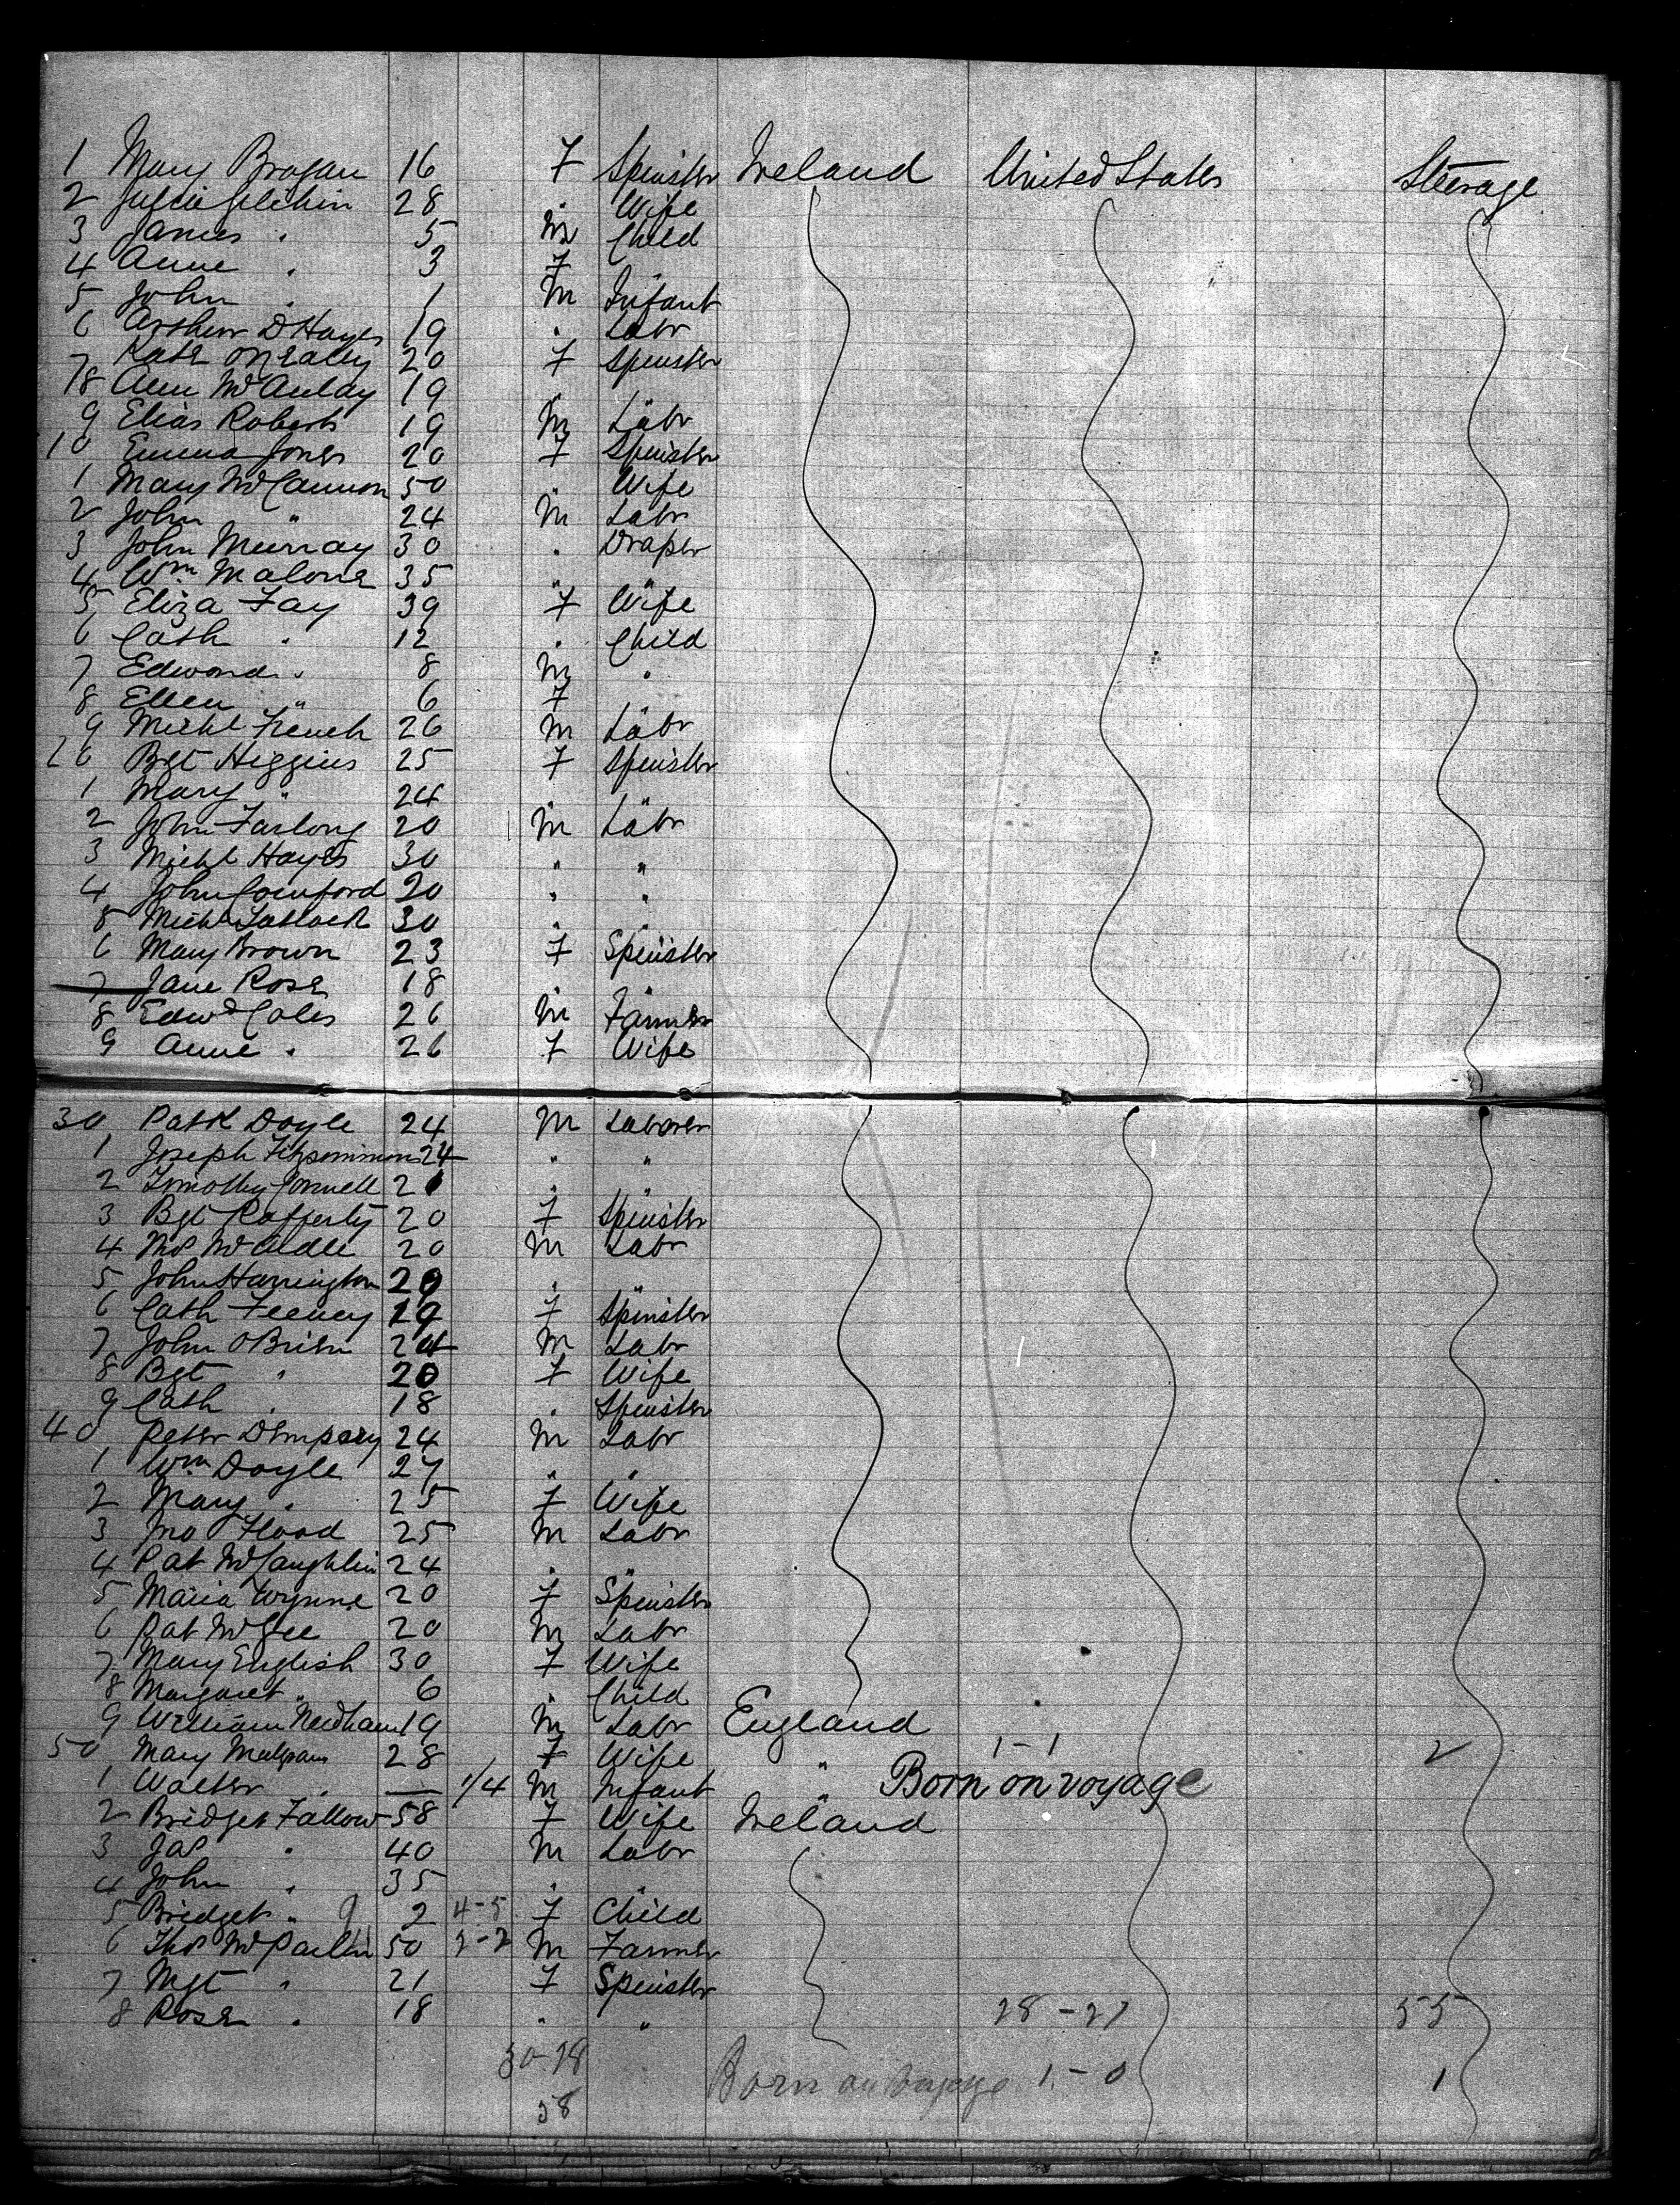 1 Mary Brogan 16 F Spinster Ireland United States Steerage
2 Julia 28 " Wife
3 James " 5 M Child
4 Anne " 3 F "
5 John " 1 M Infant
6 Arthur D Hayes 19 " Labr
7 Kate 20 F Spinster
18 Ann McAulay 19 " "
9 Elias Roberts 19 M Labr
10 Emma Jones 20 F Spinster
1 Mary McCannon 50 " Wife
2 John " 24 M Labr
3 John Murray 30 " Draper
4 Wm Malone 35 " "
5 Eliza Fay 39 F Wife
6 Cath " 12 " Child
7 Edward " 8 M "
8 Ellen " 6 F "
9 Michl French 26 M Labr
20 Bgt Higgins 25 F Spinster
1 Mary " 24 " "
2 John Farlong 20 M Labr
3 Michl Hayes 30 " "
4 John 20 " "
5 Michl 30 " "
6 Mary Brown 23 F Spinster
7 Jane Rose 18 " "
8 Edwd Coles 26 M Farmer
9 Anne " 26 F Wife
30 Patk Doyle 24 M Laborer
1 Joseph Fitzsimmons 24 " "
2 Timothy Connell 21 " "
3 Bgt Rafferty 20 F Spinster
4 Ths McArdle 20 M Labr
5 John Harrington 20 " "
6 Cath Feeney 19 F Spinster
7 John OBrien 24 M Labr
8 Bgt " 20 F Wife
9 Cath " 18 " Spinster
40 Peter Dempsey 24 M Labr
1 Wm Doyle 27 " "
2 Mary " 25 F Wife
3 Jno Flood 25 M Labr
4 Pat McLaughlin 24 " "
5 Maria Wynne 20 F Spinster
6 Pat McGee 20 M Labr
7 Mary English 30 F Wife
8 Margaret " 6 " Child
9 William Needham 19 M Labr England
50 Mary 28 F Wife " 1-1 2
1 Walter " — 1/4 M Infant " Born on voyage
2 Bridget Fallow 58 F Wife Ireland
3 Jas " 40 M Labr
4 John " 35 " "
5 Bridget " 9 2 4-5 F Child
6 Thos McParlin 50 2-2 M Farmer
7 Mgt " 21 F Spinster
8 Rose " 18 " " 28-27 55
30-28 Born on voyage 1-0 1
58